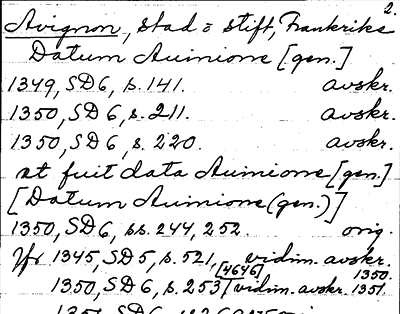 2.
Avignon, stad o stift, Frankrike
Datum Auinione [gen.]
1349, SD6, s. 141. avskr.
1350, SD6, s. 211. avskr.
1350, SD6, s. 220. avskr.
at fuit data Auinione [gen.]
[Datum Auinione (gen.)]
1350, SD6, ss. 244, 252. orig.
Jfr 1345, SD5, s. 521, vidim. avskr.
[4646] 1350.
1350, SD6, s. 253 [vidim. avskr. 1351.